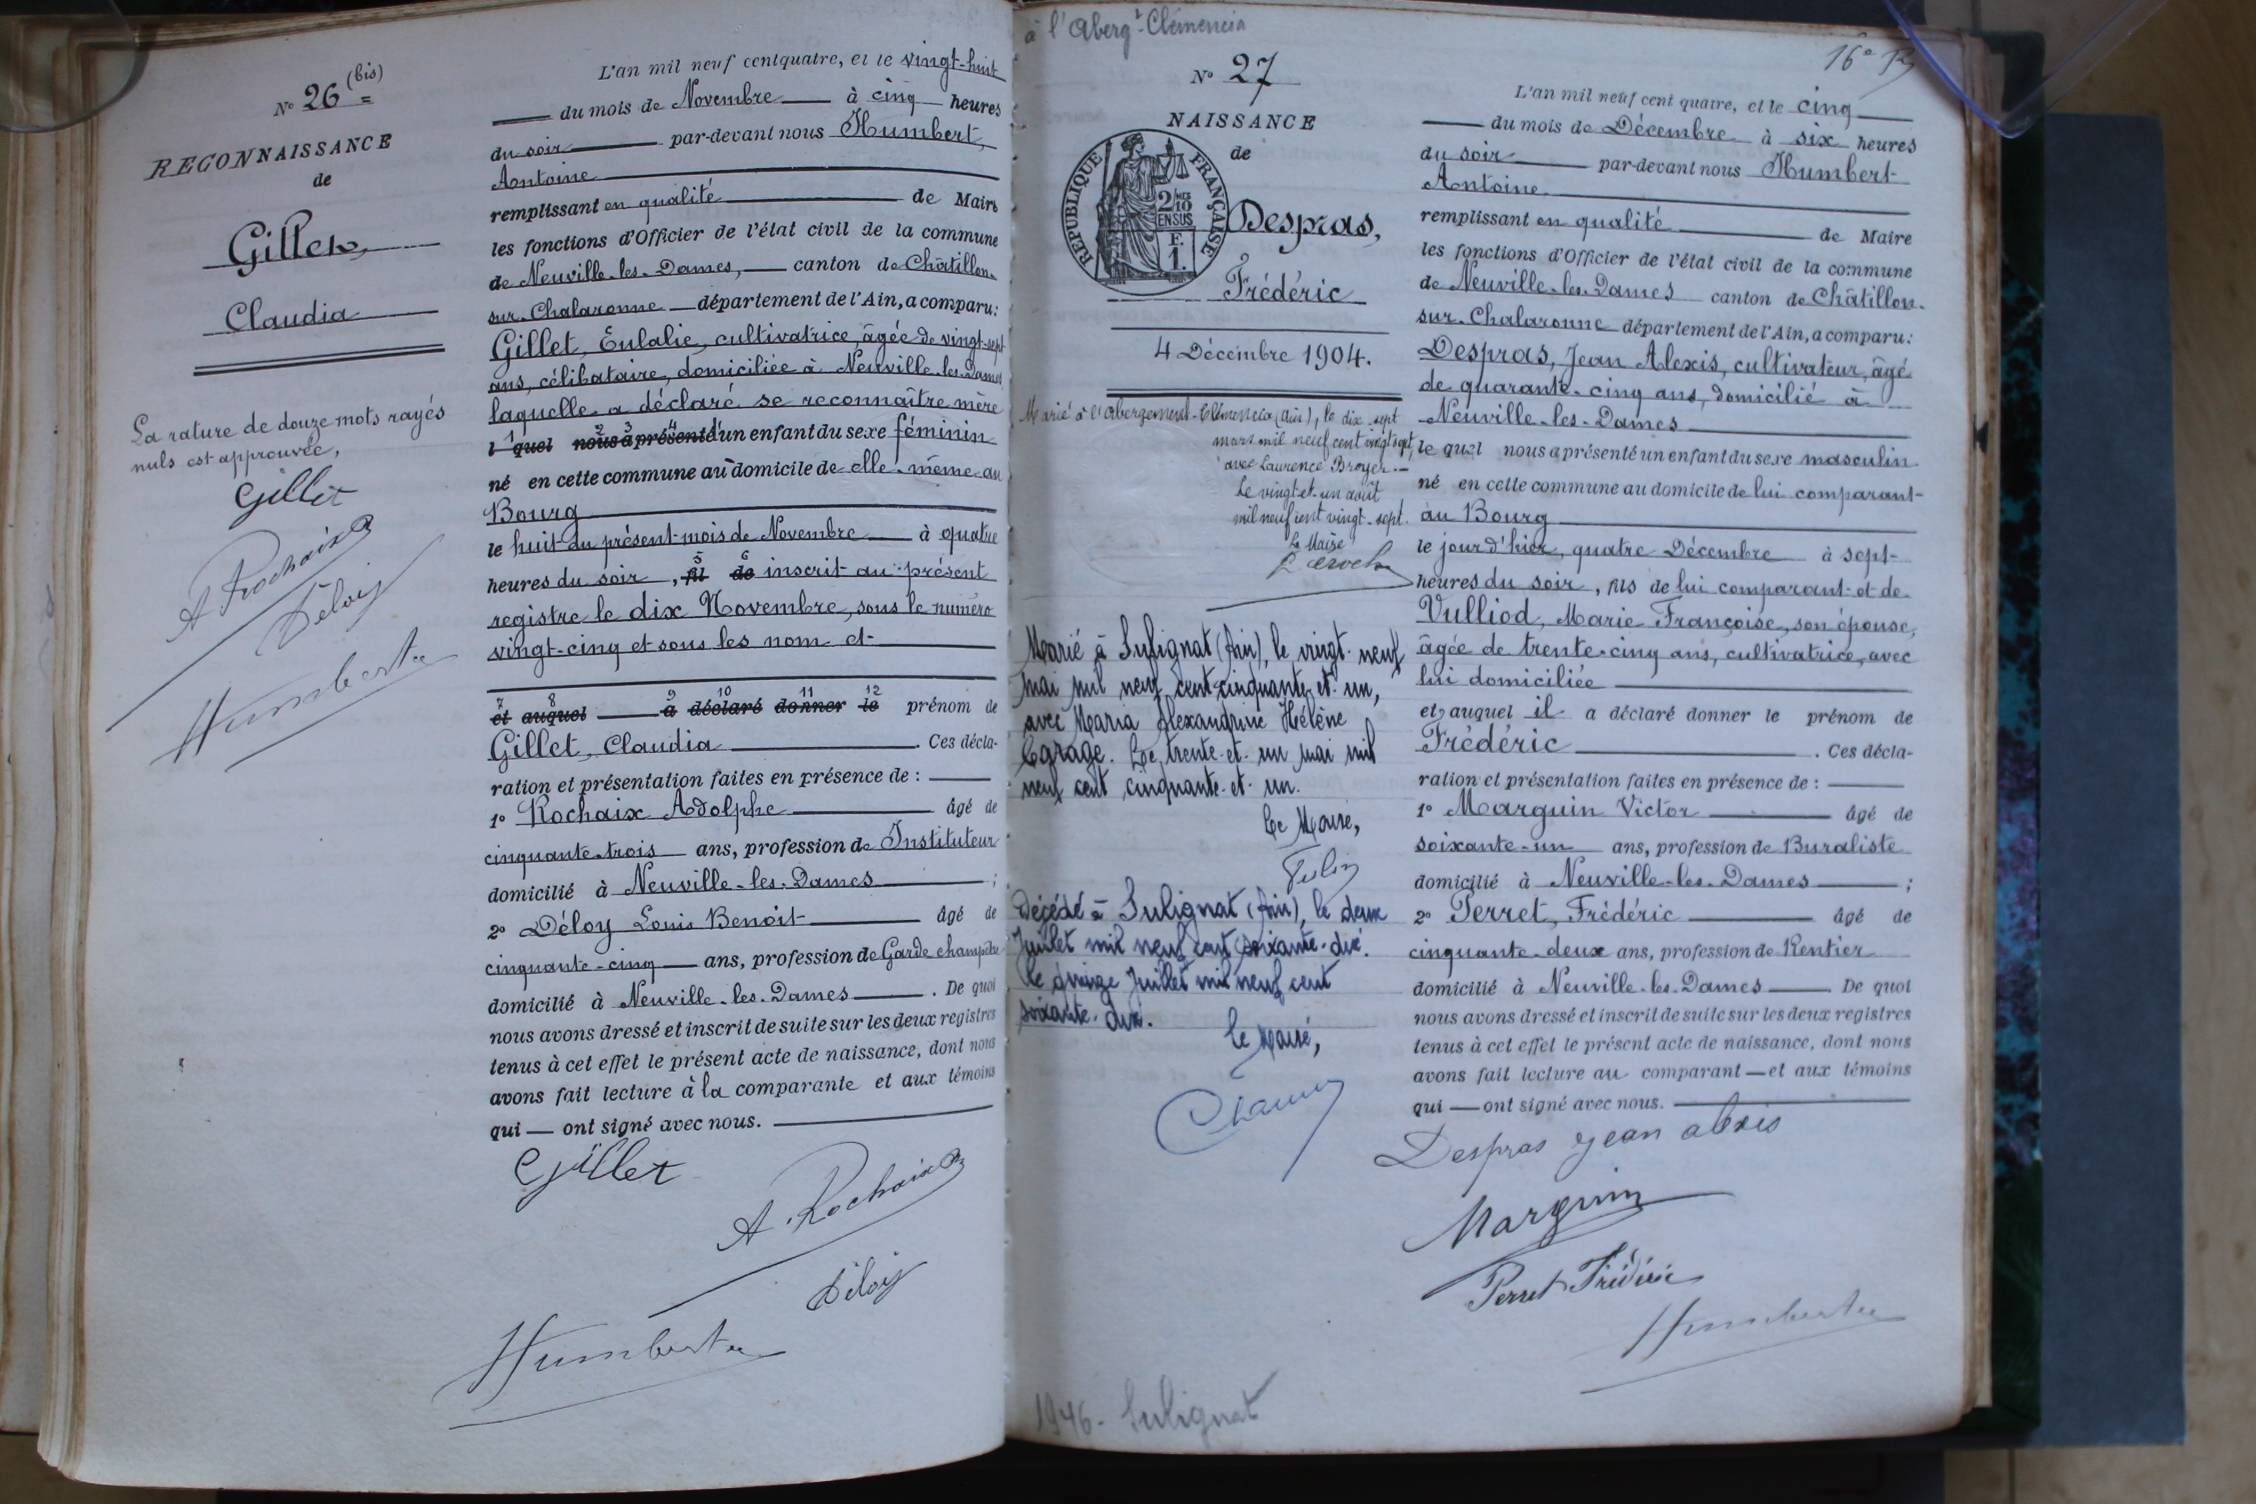 N° 26 (bis)
RECONNAISSANCE
de
Gillet,
Claudia
La rature de douze mots rayés
nuls est approuvée,
Gillet
A Rochaix
Déloy
Humbert
L'an mil neuf cent quatre, et le vingt-huit
du mois de Novembre à cinq heures
du soir par-devant nous Humbert,
Antoine
remplissant en qualité de Maire
les fonctions d'Officier de l'état civil de la commune
de Neuville-les-Dames, canton de Châtillon-
sur-Chalaronne département de l'Ain, a comparu:
Gillet, Eulalie, cultivatrice, âgée de vingt-sept
ans, célibataire, domiciliée à Neuville-les-Dames
laquelle a déclaré se reconnaître mère
1 2 3 4
l quel nous a présenté d'un enfant du sexe féminin
né en cette commune au domicile de elle-même au
Bourg
le huit du présent mois de Novembre à quatre
5 6
heures du soir, fil de inscrit au présent
registre le dix Novembre, sous le numéro
vingt-cinq et sous les nom et
7 8 9 10 11 12
et auquel a déclaré donner le prénom de
Gillet, Claudia . Ces décla-
ration et présentation faites en présence de :
1° Rochaix Adolphe âgé de
cinquante-trois ans, profession de Instituteur
domicilié à Neuville-les-Dames ;
2° Déloy Louis Benoit âgé de
cinquante-cinq ans, profession de Garde champêtre
domicilié à Neuville-les-Dames . De quoi
nous avons dressé et inscrit de suite sur les deux registres
tenus à cet effet le présent acte de naissance, dont nous
avons fait lecture à la comparante et aux témoins
qui ont signé avec nous.
Gillet
A. Rochaix
Déloy
Humbert
à l'Aberg^t Clémencia
N° 27
NAISSANCE
de
RÉPUBLIQUE FRANÇAISE
2/10 EN SUS
F. 1.
Despras,
Frédéric
4 Décembre 1904.
Marié à l'Abergement-Clémencia (Ain), le dix sept
mars mil neuf cent vingt sept,
avec Laurence Broyer.
Le vingt-et-un août
mil neuf cent vingt-sept.
Le Maire
Marié à Sulignat (Ain), le vingt-neuf
mai mil neuf cent cinquante et un,
avec Maria Alexandrine Hélène
Carage. Le trente-et-un mai mil
neuf cent cinquante-et-un.
Le Maire,
Décédé à Sulignat (Ain), le deux
Juillet mil neuf cent soixante-dix.
Le quinze Juillet mil neuf cent
soixante-dix.
Le Maire,
1946 - Sulignat
16e
L'an mil neuf cent quatre, et le cinq
du mois de Décembre à six heures
du soir par-devant nous Humbert
Antoine
remplissant en qualité de Maire
les fonctions d'Officier de l'état civil de la commune
de Neuville-les-Dames canton de Châtillon-
sur-Chalaronne département de l'Ain, a comparu:
Despras, Jean Alexis, cultivateur, âgé
de quarante-cinq ans, domicilié à
Neuville-les-Dames
le quel nous a présenté un enfant du sexe masculin
né en cette commune au domicile de lui comparant
au Bourg
le jour d'hier, quatre Décembre à sept
heures du soir, fils de lui comparant et de
Vulliod, Marie Françoise, son épouse,
âgée de trente-cinq ans, cultivatrice, avec
lui domiciliée
et auquel il a déclaré donner le prénom de
Frédéric . Ces décla-
ration et présentation faites en présence de :
1° Marguin Victor âgé de
soixante-un ans, profession de Buraliste
domicilié à Neuville-les-Dames ;
2° Perret, Frédéric âgé de
cinquante-deux ans, profession de Rentier
domicilié à Neuville-les-Dames De quoi
nous avons dressé et inscrit de suite sur les deux registres
tenus à cet effet le présent acte de naissance, dont nous
avons fait lecture au comparant et aux témoins
qui ont signé avec nous.
Despras jean alexis
Marguin
Perret Frédéric
Humbert